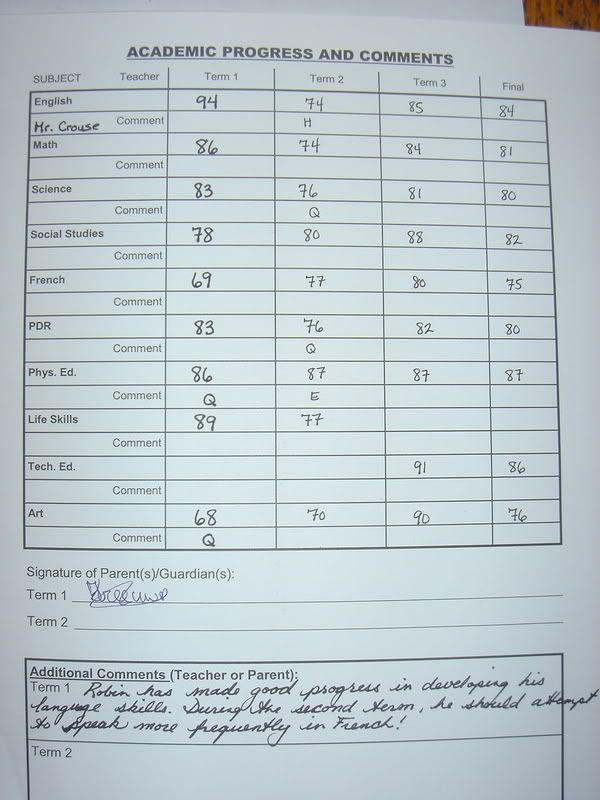 ACADEMIC PROGRESS AND COMMENTS
SUBJECT Teacher Term 1 Term 2 Term 3 Final
English 94 74 85 84
Mr. Crouse Comment H
Math 86 74 84 81
Comment
Science 83 76 81 80
Comment Q
Social Studies 78 80 88 82
Comment
French 69 77 80 75
Comment
PDR 83 76 82 80
Comment Q
Phys. Ed. 86 87 87 87
Comment Q E
Life Skills 89 77
Comment
Tech. Ed. 91 86
Comment
Art 68 70 90 76
Comment Q
Signature of Parent(s)/Guardian(s):
Term 1
Term 2
Additional Comments (Teacher or Parent):
Term 1 Robin has made good progress in developing his
language skills. During the second term, he should attempt
to speak more frequently in French!
Term 2